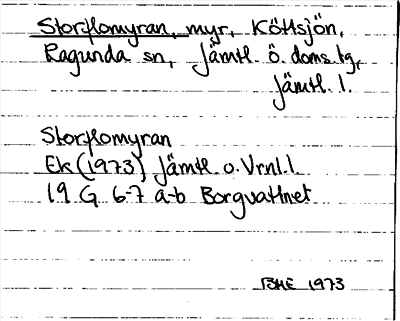 Storflomyran, myr, Köttsjön,
Ragunda sn, Jämtl. ö. doms.tg,
Jämtl. l.
Storflomyran
Ek (1973) Jämtl. o. Vrnl. l.
19 G 6-7 a-b Borgvattnet
BHE 1973